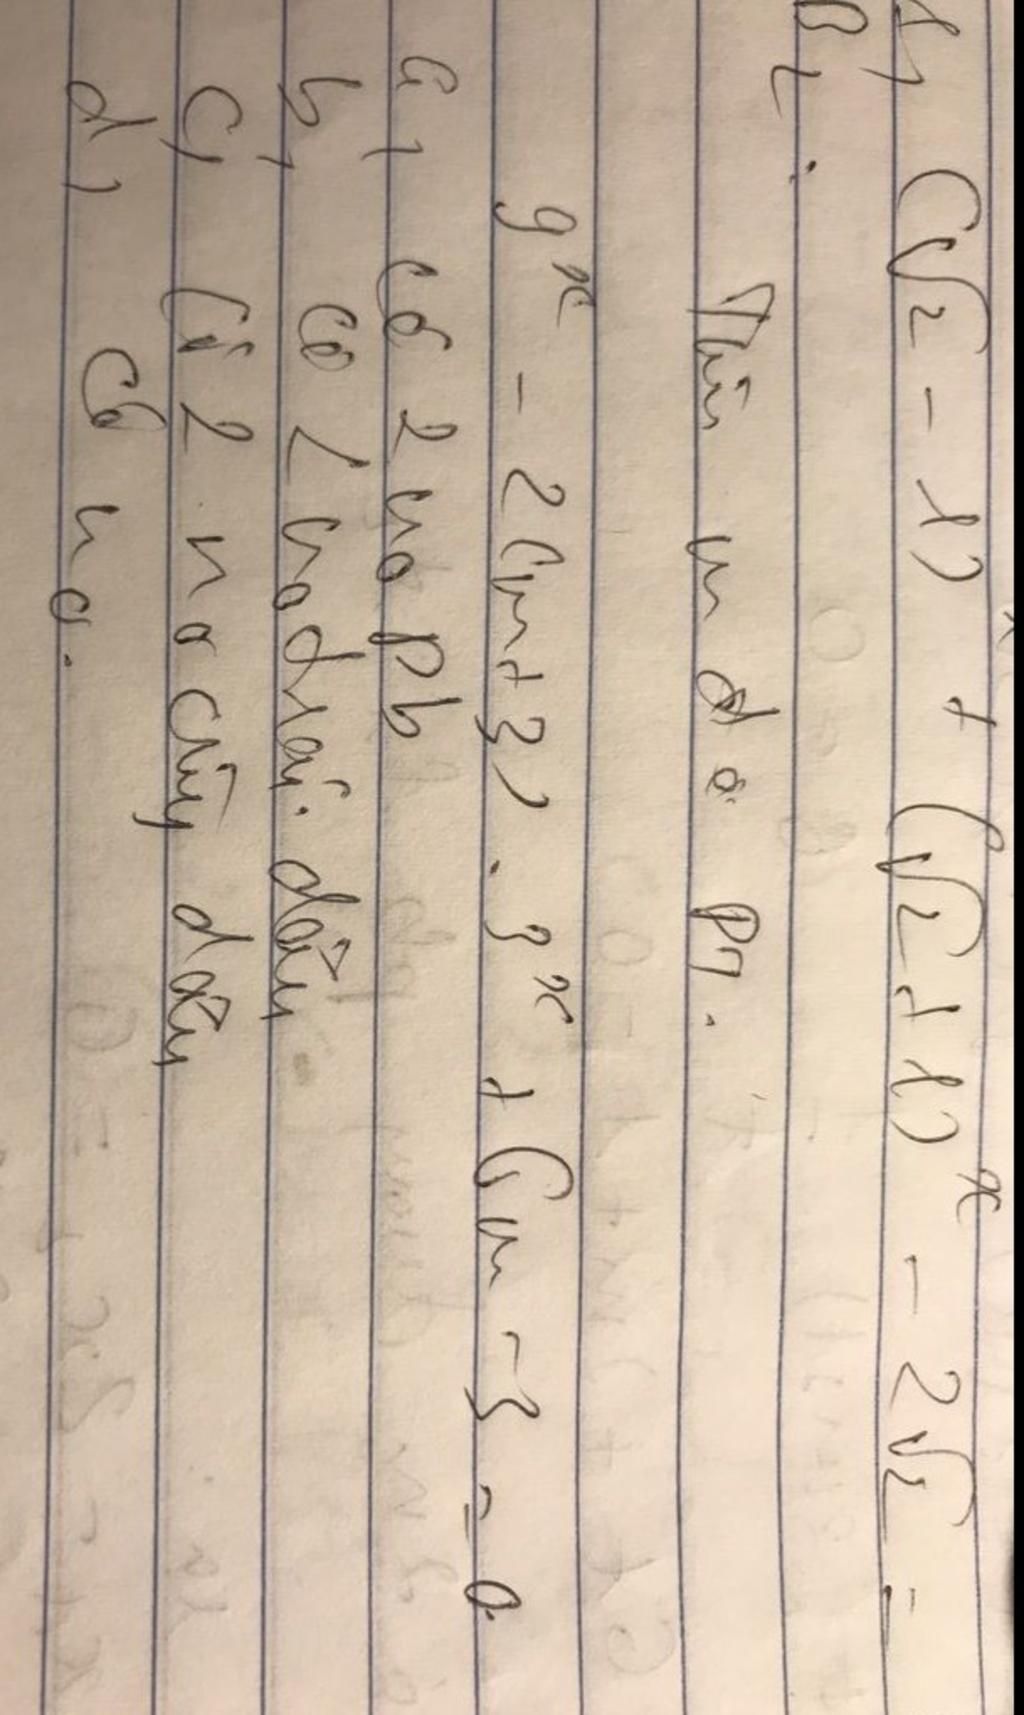 d, (√2 - 1)ˣ + (√2 + 1)ˣ - 2√2 =
B2:
Tìm m để PT.
9ˣ - 2(m+3).3ˣ + 6m - 3 = 0.
a, có 2 no pb
b, có 2 no trái dấu
c, có 2 no cùng dấu
d, có no.